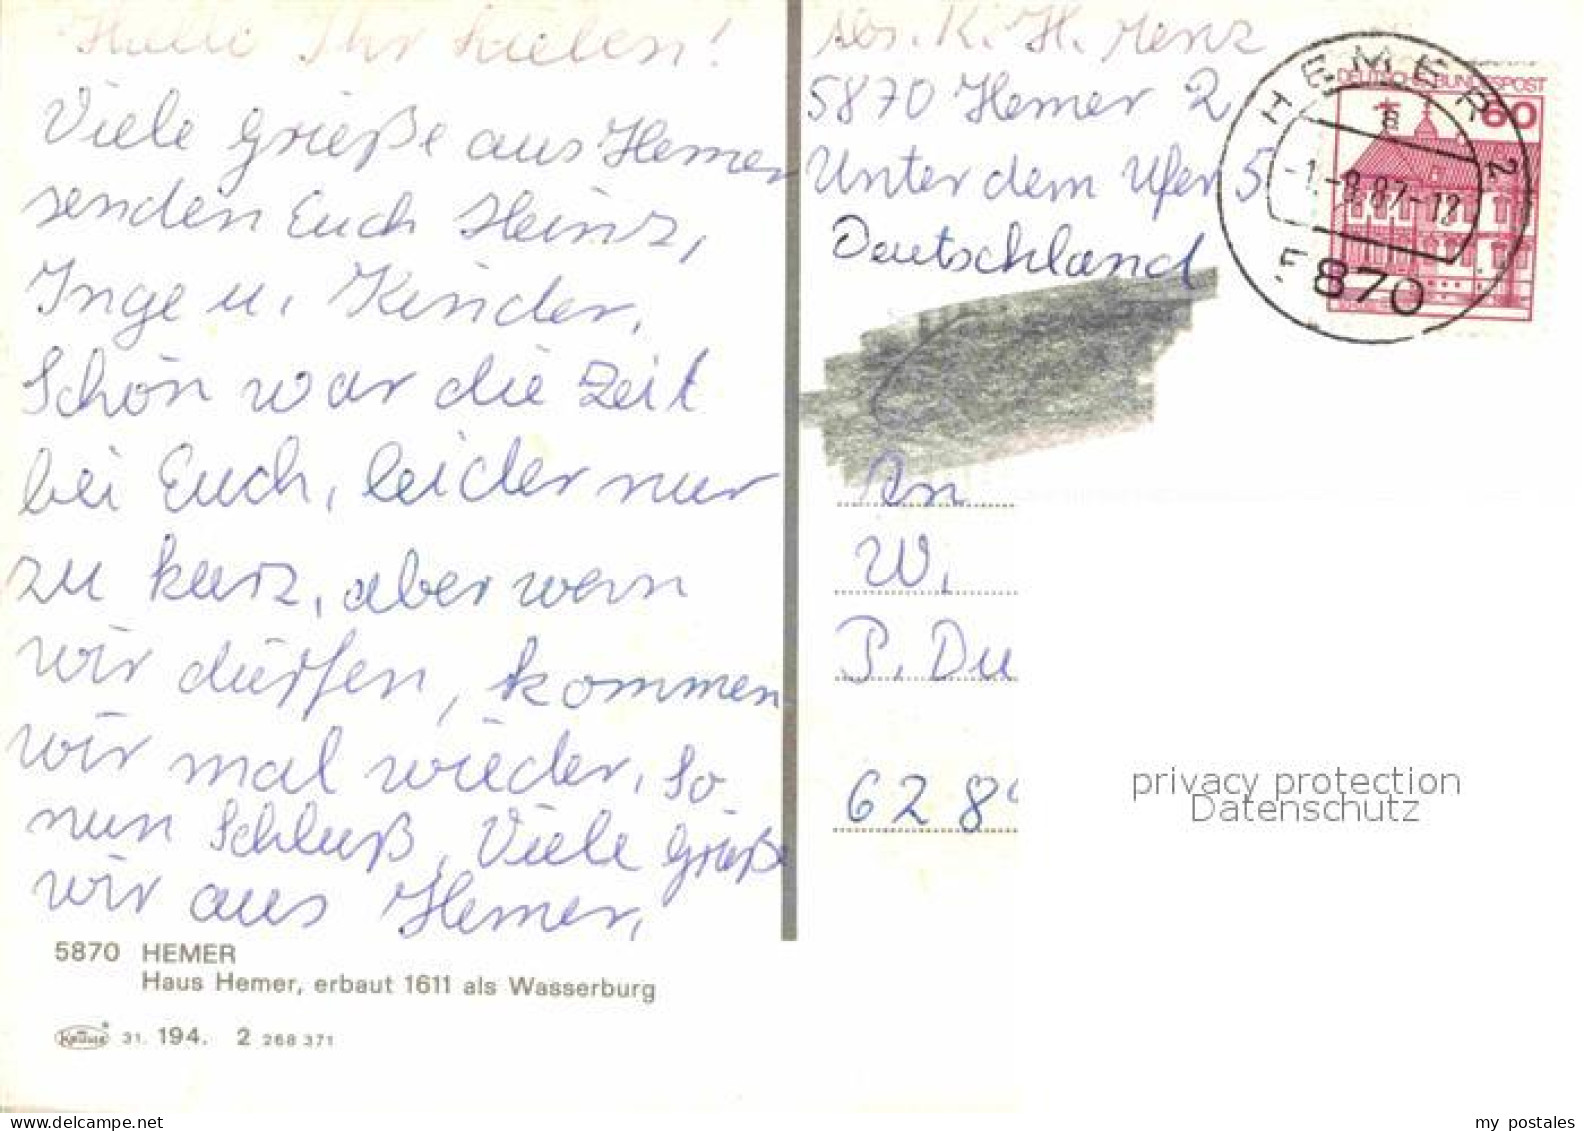 Hallo Ihr Lieben!
Viele Grüße aus Hemer
senden Euch Heinz,
Inge u. Kinder.
Schön war die Zeit
bei Euch, leider nur
zu kurz, aber wenn
wir dürfen, kommen
wir mal wieder. So
nun Schluß, Viele Grüße
wir aus Hemer,
5870 HEMER
Haus Hemer, erbaut 1611 als Wasserburg
Krüger 31. 194. 2 268 371
Abs. K. H. Menz
5870 Hemer 2
Unter dem Ufer 5
Deutschland
DEUTSCHE BUNDESPOST
60
HEMER 2
-1.-9.87-12
5870
An
W.
P. Du
628
privacy protection
Datenschutz
my postales